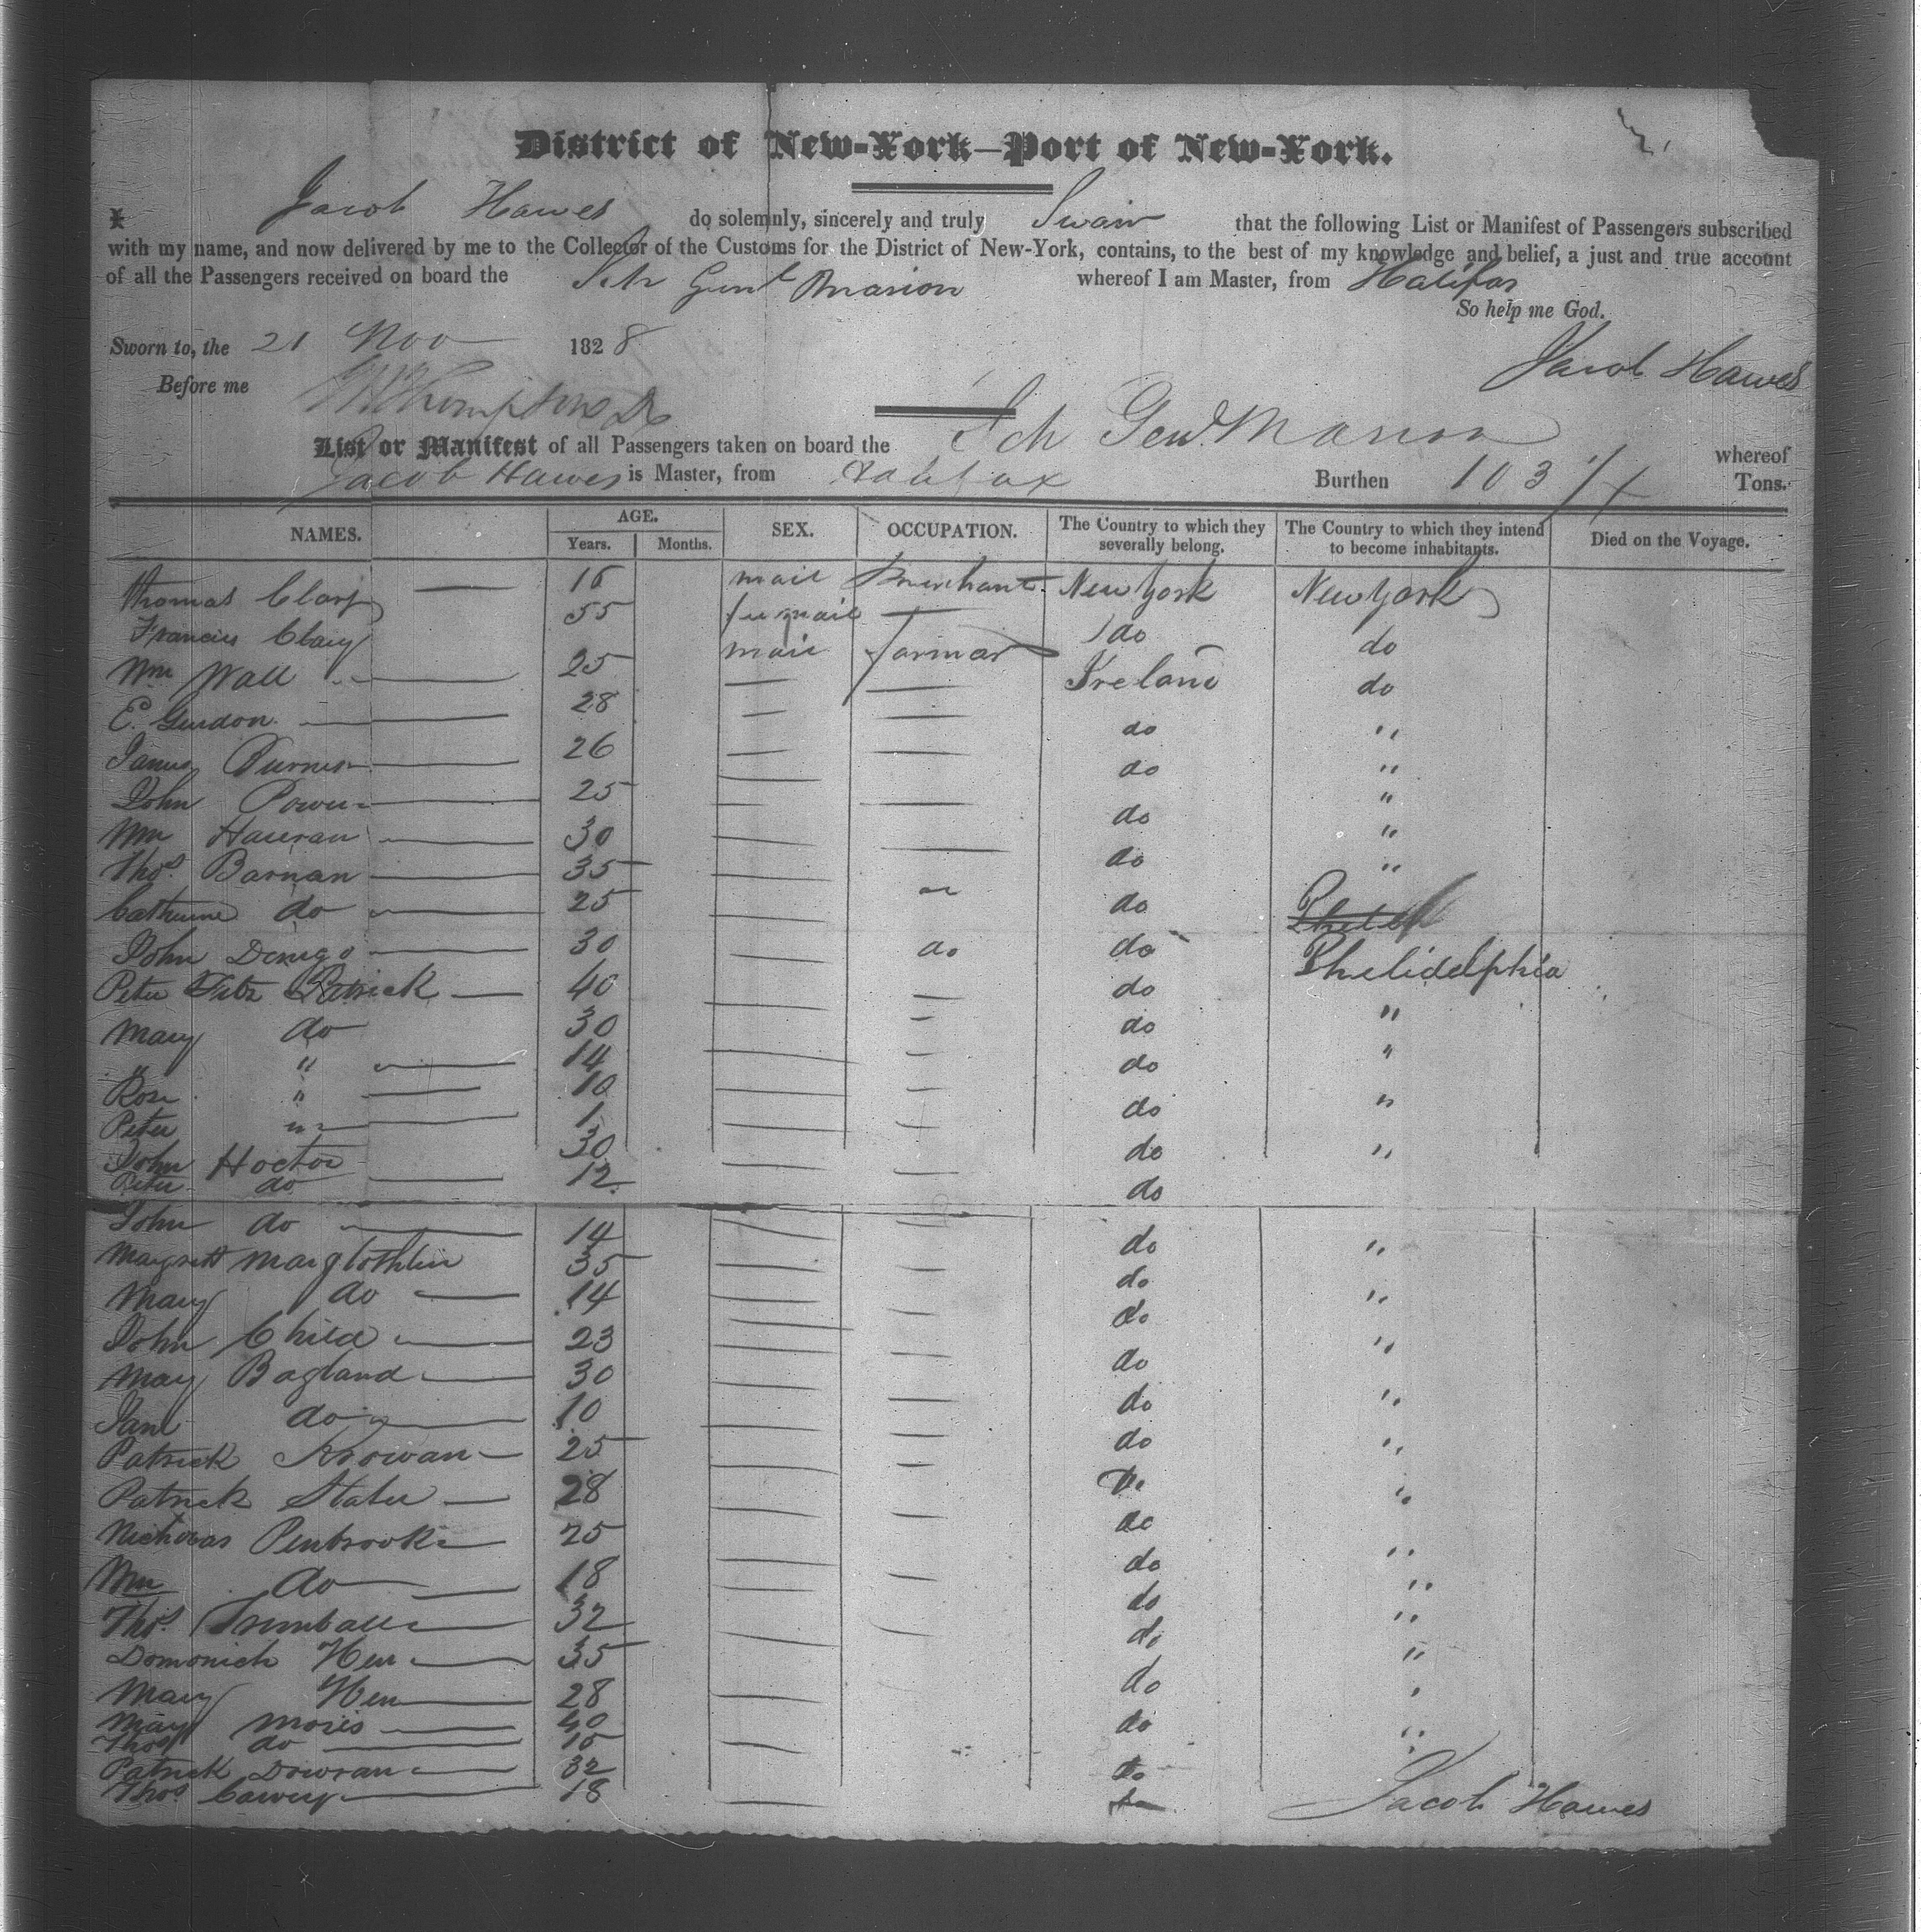 District of New-York—Port of New-York.
I Jacob Hawes do solemnly, sincerely and truly Swair that the following List or Manifest of Passengers subscribed
with my name, and now delivered by me to the Collector of the Customs for the District of New-York, contains, to the best of my knowledge and belief, a just and true account
of all the Passengers received on board the Schr Genl Marion whereof I am Master, from Halifax
So help me God.
Sworn to, the 21 Nov 1828
Jacob Hawes
Before me Thompson
List or Manifest of all Passengers taken on board the Sch Genl. Marion whereof
Jacob Hawes is Master, from Halifax Burthen 103 Tons.
NAMES. AGE. SEX. OCCUPATION. The Country to which they severally belong. The Country to which they intend to become inhabitants. Died on the Voyage.
Years. Months.
Thomas Clary — 16 mail Merchant New York New York
Francies Clary 55 fu mail — do do
Wm Wall — 25 mail farmar Ireland do
E. Gurdon — 28 — — do "
James — 26 — — do "
John Power — 25 — — do "
Wm — 30 — — do "
Thos. Barnan — 35 — — do "
Catherine do — 25 — do
John — 30 — do do Phelidelphia
Peter Fitz Patrick — 40 — — do "
Mary do 30 — do "
" " — 14 — — do
Rose " — 10 — — do "
Peter " — 1 — —
John Hoctor 30 — do "
Peter do — 12 — — do
John do — 14 — — do "
Margrett 35 — — do
Mary do — 14 — — do "
John Child — 23 — — do "
Mary Bagland — 30 — — do
Jane do — 10 — — do "
Patrick — 25 — — do "
Patrick — 28 — — "
Nichoas Penbrook — 25 — — do "
Wm do — 18 — — do "
Thos. — 32 — — do "
Domonick Hen — 35 — do "
Mary Hen — 28 — do
Mary Moris — 40 — do "
Thos do — 10 —
Patrick — 32 do
Thos. — 18 —
Jacob Hawes